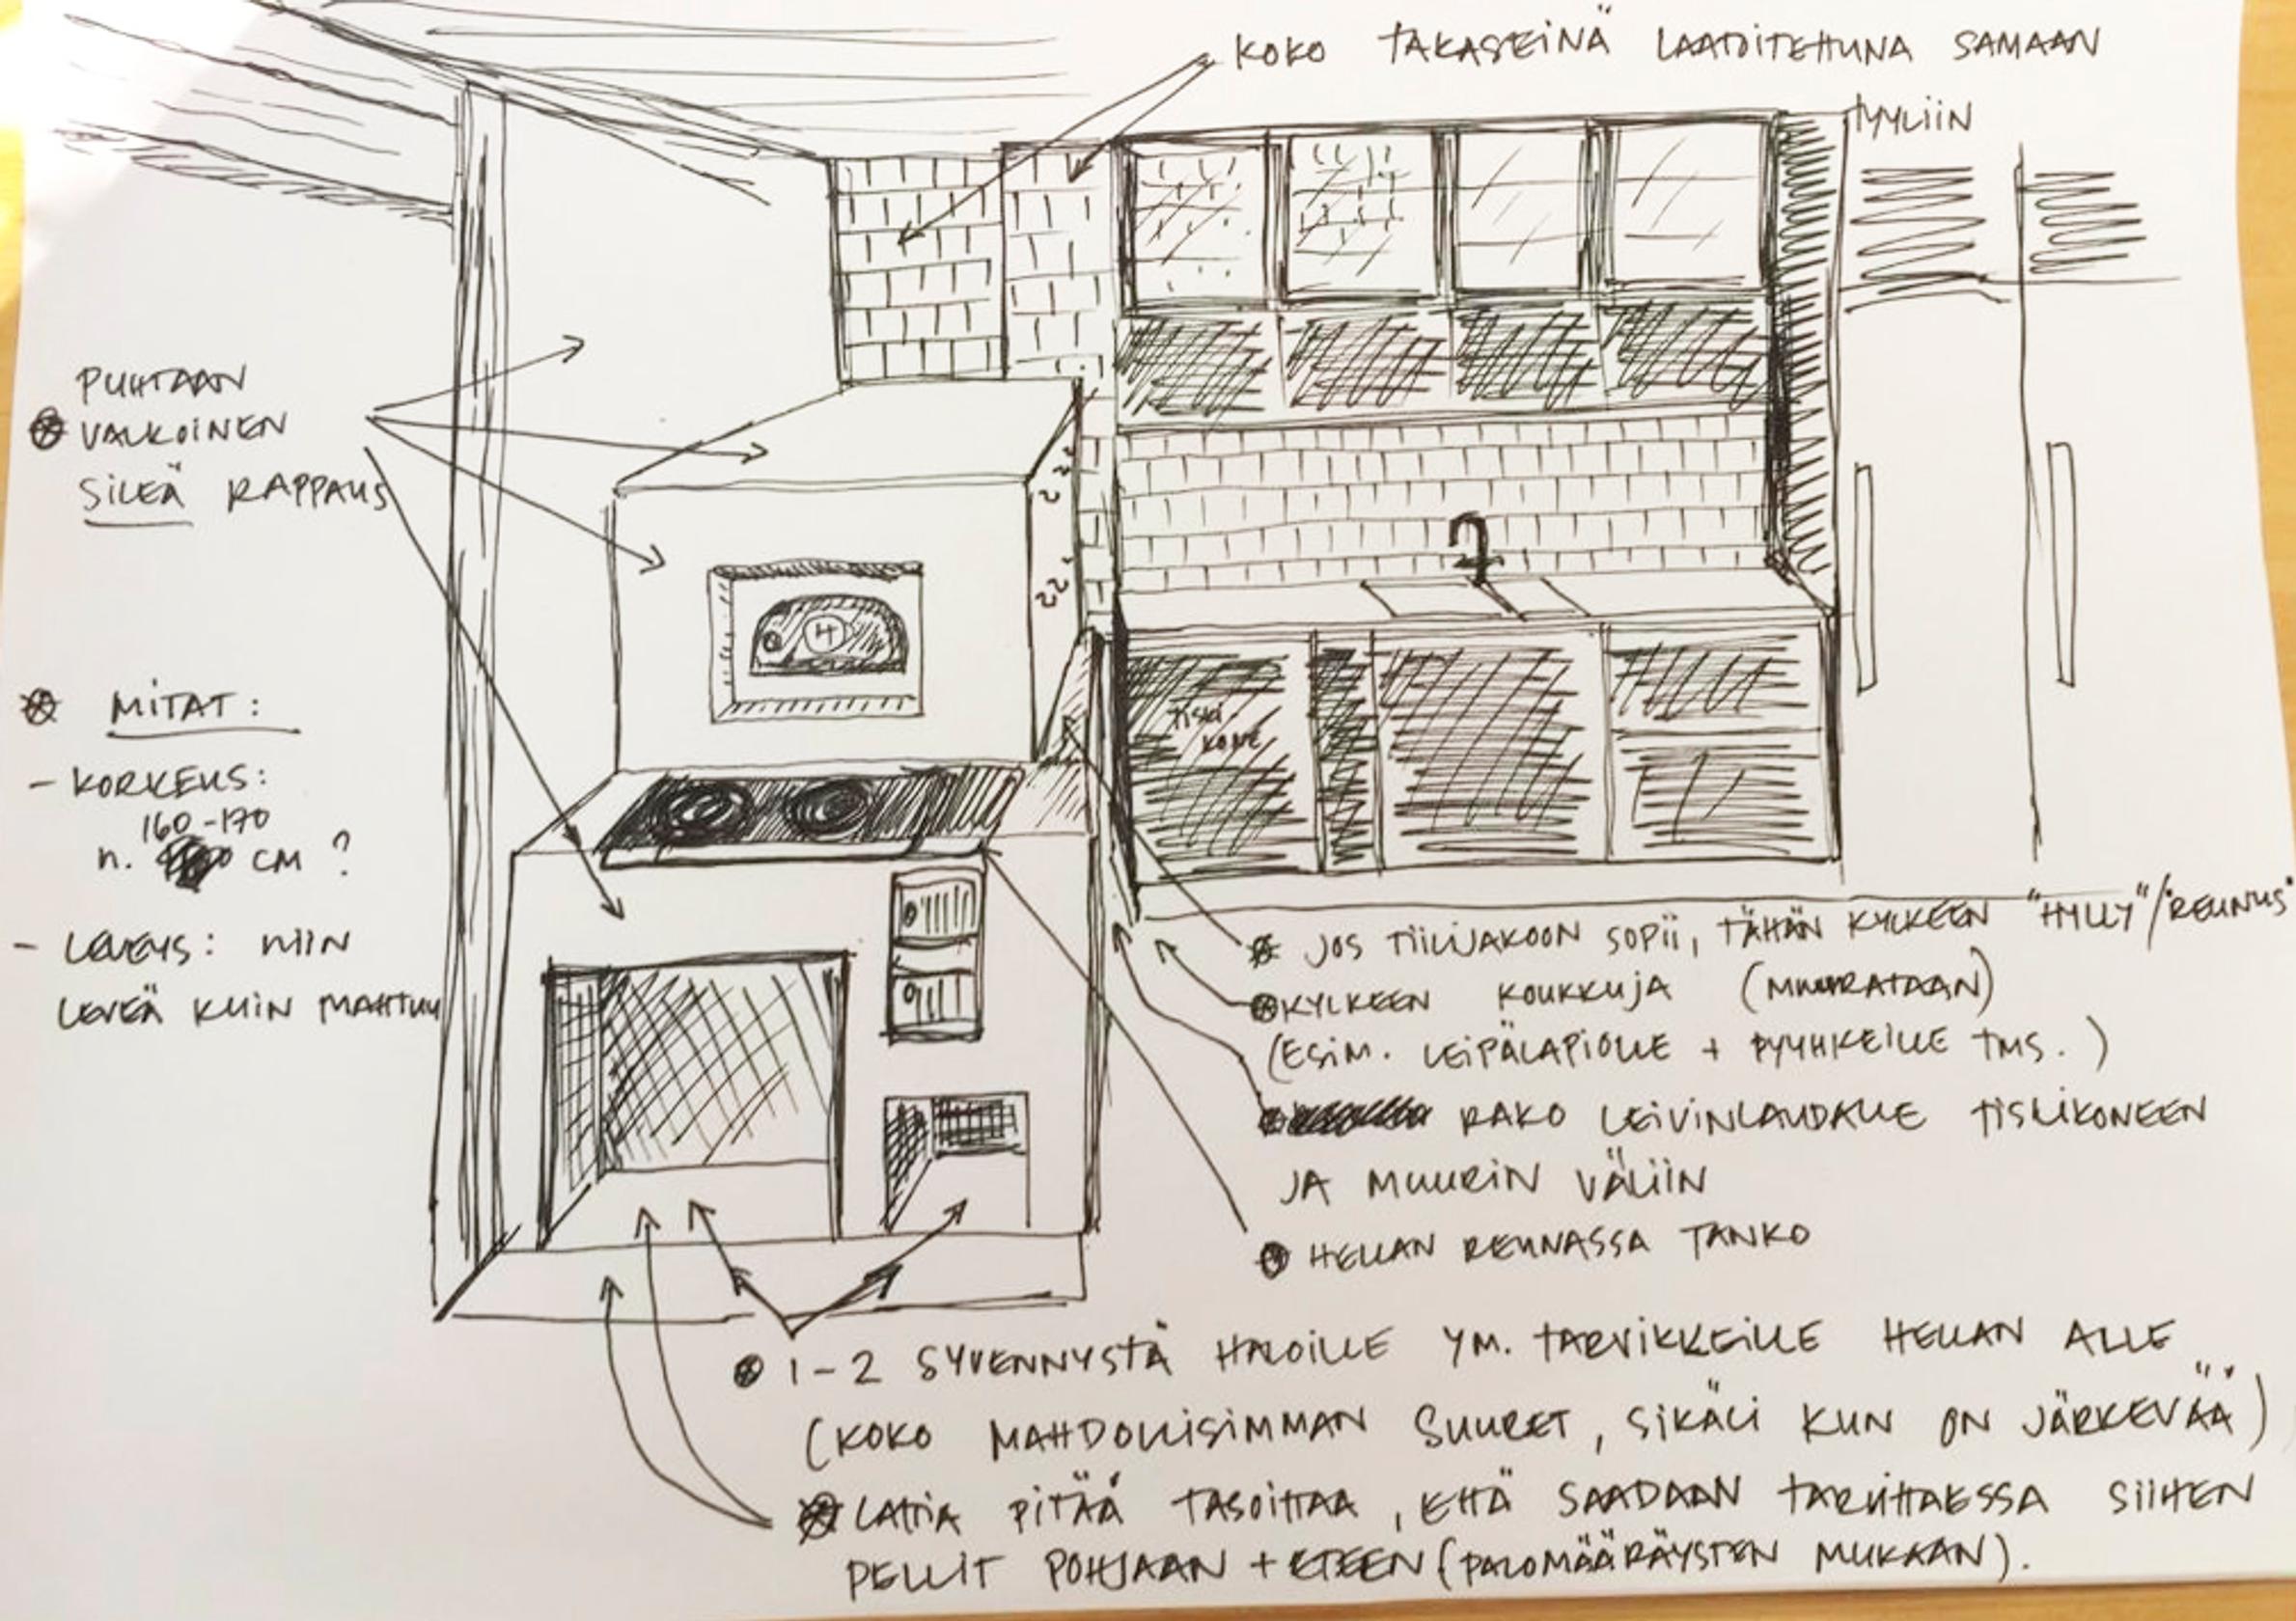 KOKO TAKASEINÄ LAATOITETTUNA SAMAAN
TYYLIIN
PUHTAAN
VALKOINEN
SILEÄ RAPPAUS
MITAT:
- KORKEUS:
160-170
n. CM ?
- LEVEYS: NIIN
LEVEÄ KUIN MAHTUU
4
TISKI-
KONE
JOS TIILIJAKOON SOPII, TÄHÄN KYLKEEN "HYLLY"/"REUNUS"
KYLKEEN KOUKKUJA (MUURATAAN)
(ESIM. LEIPÄLAPIOLLE + PYYHKEILLE TMS.)
RAKO LEIVINLAUDALLE TISKIKONEEN
JA MUURIN VÄLIIN
HELLAN REUNASSA TANKO
1-2 SYVENNYSTÄ HALOILLE YM. TARVIKKEILLE HELLAN ALLE
(KOKO MAHDOLLISIMMAN SUURET, SIKÄLI KUN ON JÄRKEVÄÄ)
LATTIA PITÄÄ TASOITTAA, ETTÄ SAADAAN TARVITTAESSA SIIHEN
PELLIT POHJAAN + ETEEN (PALOMÄÄRÄYSTEN MUKAAN).